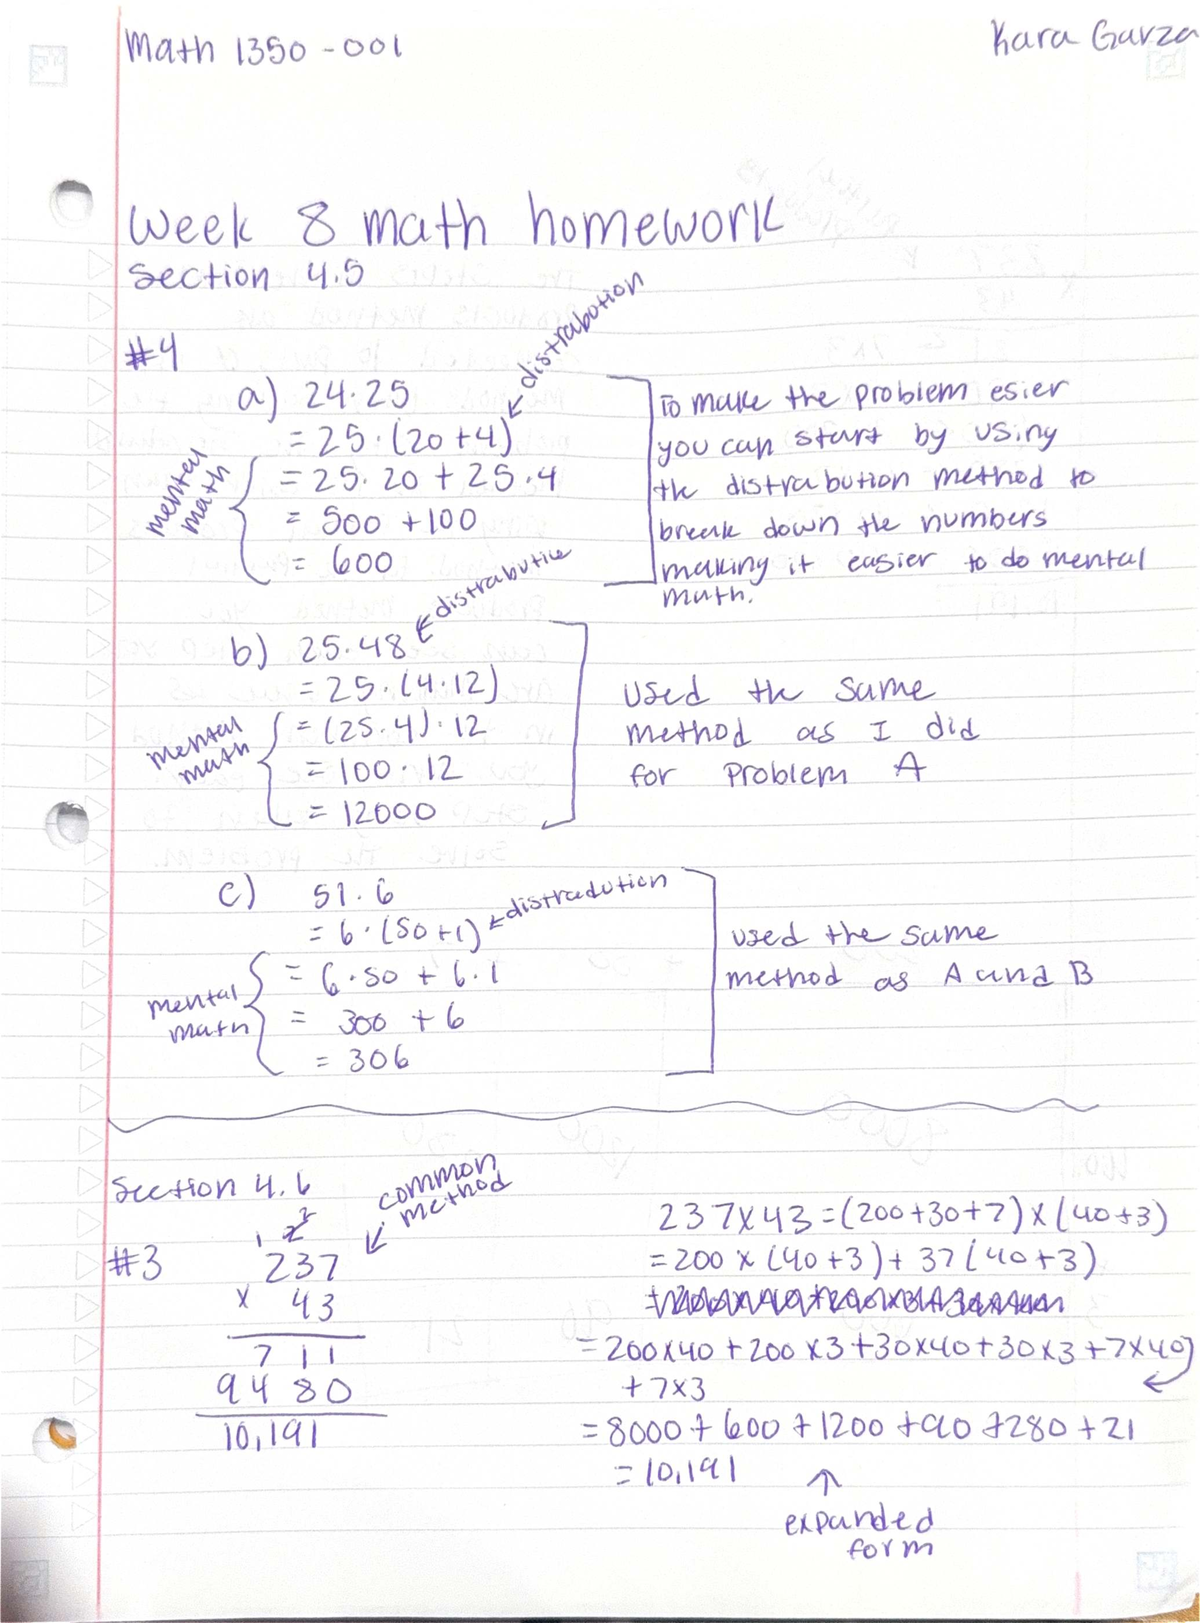 Math 1350-001
Kara Garza
Week 8 math homework
Section 4.5
#4
a) 24·25
= 25·(20+4)
distrabution
= 25·20 + 25·4
= 500 + 100
= 600
mental
math
To make the problem esier
you can start by using
the distrabution method to
break down the numbers
making it easier to do mental
math.
b) 25·48
distrabutive
= 25·(4·12)
= (25·4)·12
= 100·12
= 12000
mental
math
used the same
method as I did
for problem A
c) 51·6
= 6·(50+1)
distradution
= 6·50 + 6·1
= 300 + 6
= 306
mental
math
used the same
method as A and B
Section 4.6
common
method
#3
1 2
237
x 43
711
9480
10,191
237x43 = (200+30+7)x(40+3)
= 200 x (40+3) + 37(40+3)
= 200x40 + 200x3 + 30x40 + 30x3 + 7x40
+ 7x3
= 8000 + 600 + 1200 + 90 + 280 + 21
= 10,191
expanded
form